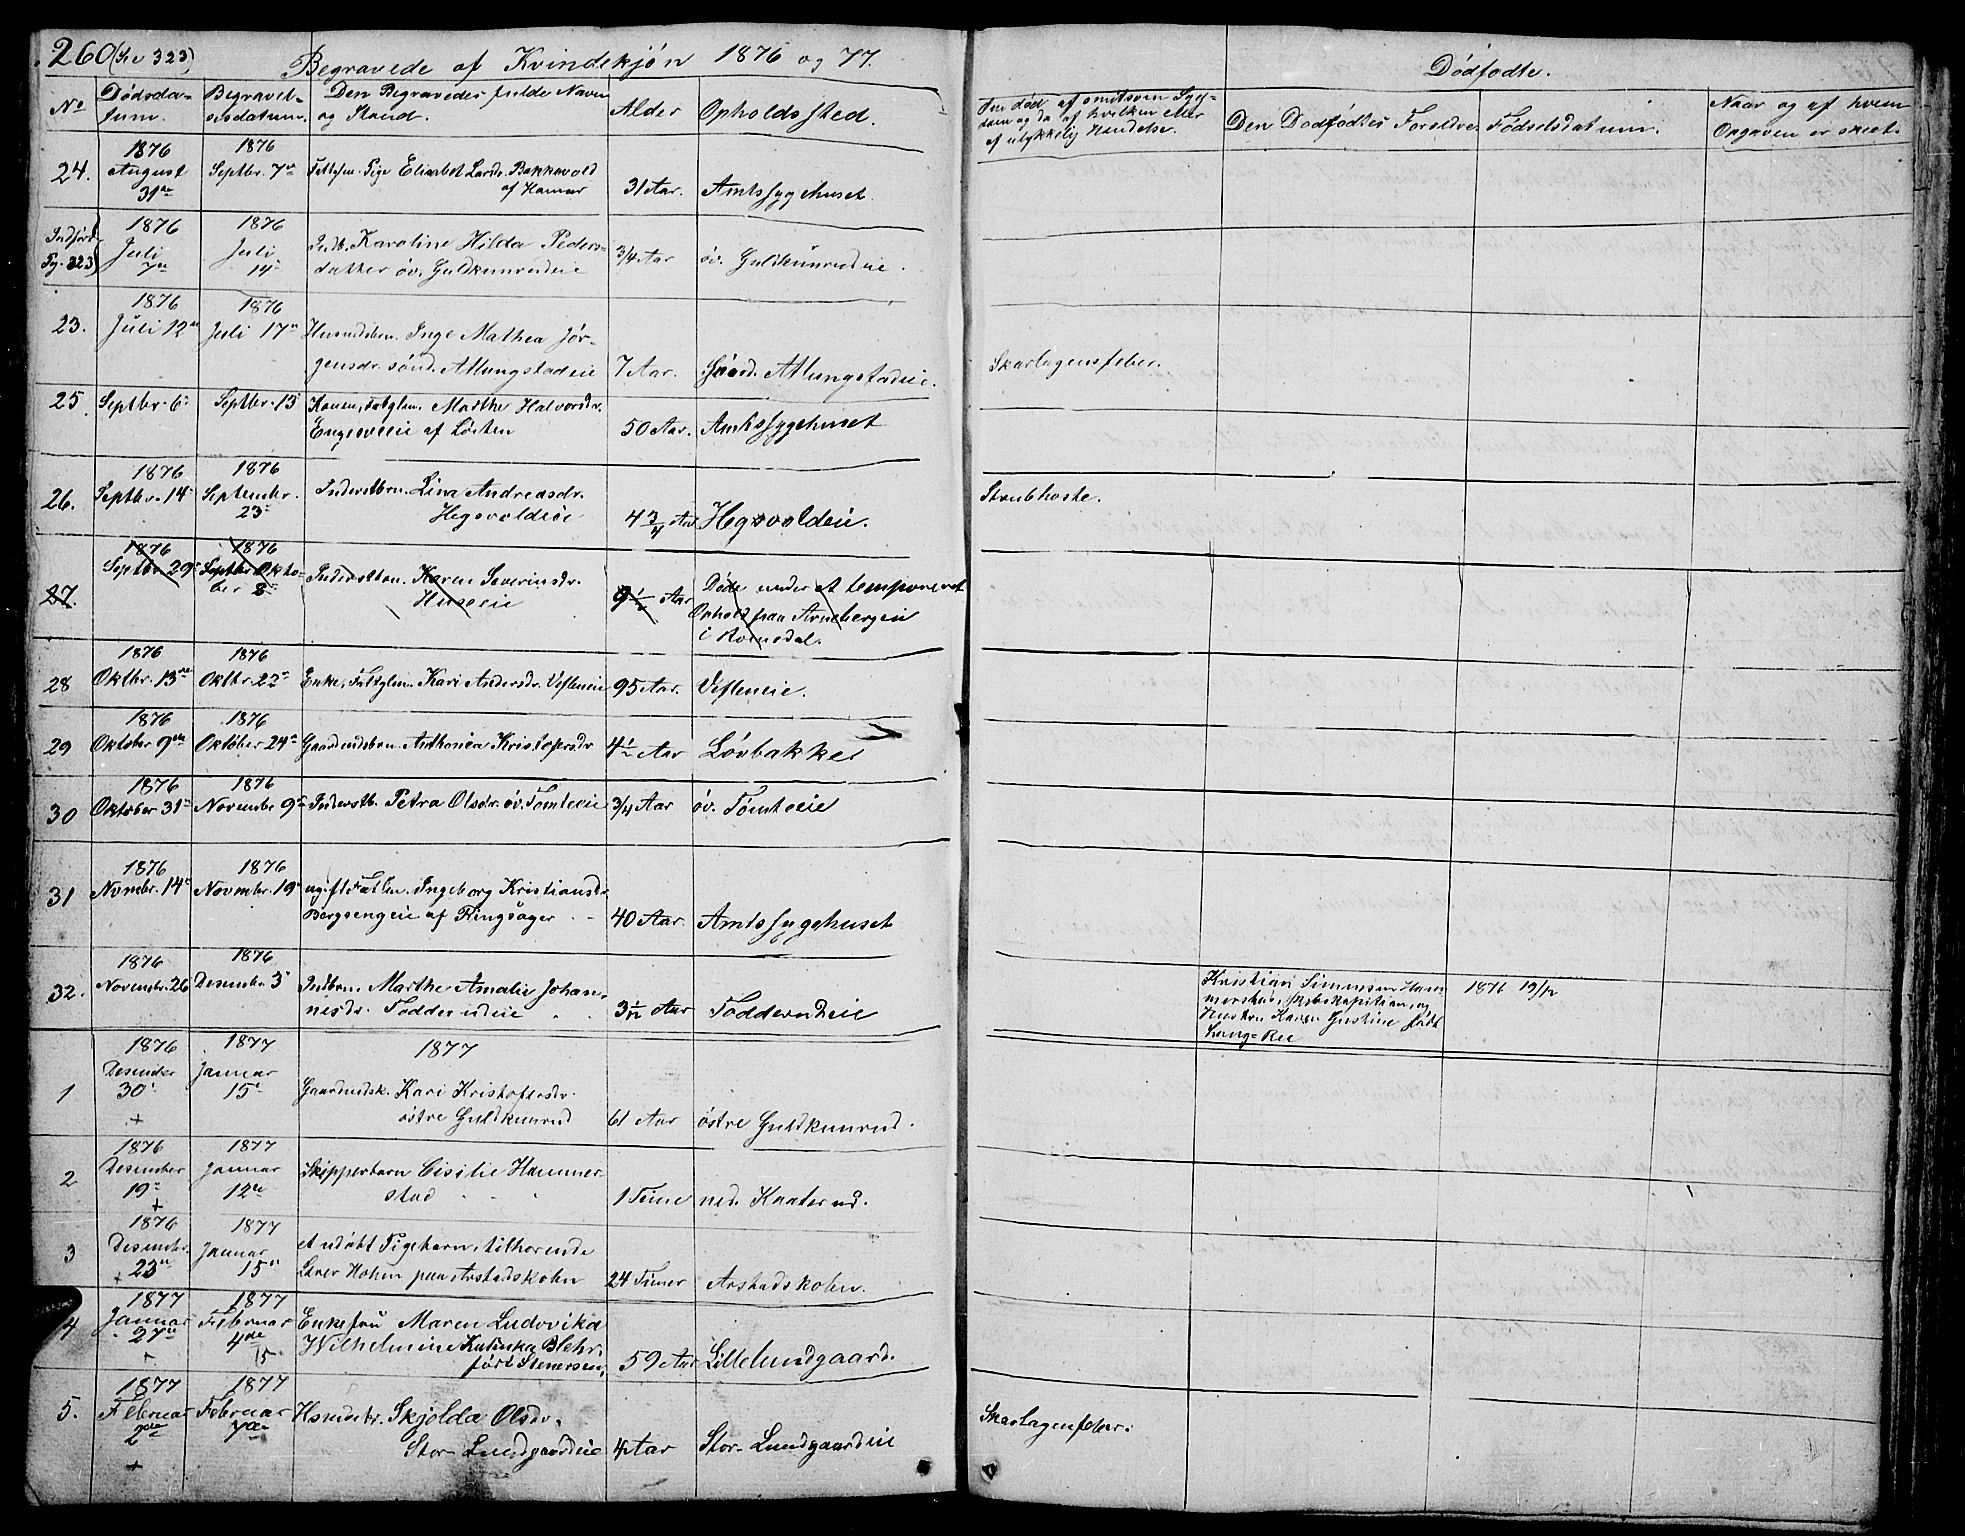 260 (Se 323)
Begravede af Kvindekjøn 1876 og 77.
Dødfødte.
No
Dødsda-
tum.
Begravel-
sesdatum.
Den Begravedes fulde Navn
og Stand.
Alder
Opholdssted.
Om død af smitsom Syg-
dom og da af hvilken eller
af ulykkelig Hendelse.
Den Dødfødtes Foreldre.
Fødselsdatum.
Naar og af hvem
Opgaven er skeet.
24.
1876
August
31te
1876
Septbr. 7de
Pige Elisabet Larsdr. Bakkevold
af Hamar
31 Aar.
Amtssygehuset.
Indført
Pg. 323
1876
Juli
7de
1876
Juli
14
Indb. Karoline Hilda Peders-
datter øv. Guldkunrudeie
3/4 Aar
øv. Guldkunrudeie.
23.
1876
Juli 12te
1876
Juli 17de
Husmdsbn. Inge Mathea Jør-
gensdr. sønd. Atlungstadeie
7 Aar.
Sønd. Atlungstadeie.
Skarlagensfeber.
25.
Septbr. 6
Septbr. 15
Konen, Marthe Halvorsdr.
af Løiten
50 Aar.
Amtssygehuset
26.
1876
Septbr. 14
1876
September
23
Inderstbn. Lina Andreasdr.
Hegsvoldeie
4 3/4 Aar
Hegsvoldeie.
Strubhoste.
27.
1876
Septbr. 29
1876
Septbr Okto-
ber 8
Inderstbn. Karen Severinsdr.
Huseeie
9 1/2 Aar
Døde under et temporeret
Ophold paa Arnebergeie
i Romedal.
28
1876
Oktbr. 13de
1876
Oktbr. 22
Enke, Kari Andersdr. Vefleneie
95 Aar.
Vefleneie.
29
1876
Oktober 9de
1876
Oktober 24
Gaardmdsbn. Anthonia Kristofersdr
4 1/2 Aar
Løvbakke
30
1876
Oktober 31
1876
November 9
Inderstb. Petra Olsdr. øv. Tomteeie
3/4 Aar
øv. Tomteeie
31
1876
Novmbr. 14
1876
Novembr. 19
ugift Ingeborg Kristiansdr.
Bergsengeie af Ringsager
40 Aar.
Amtssygehuset
32.
1876
Novembr. 26
1876
Desember 3
Indbn. Marthe Amalie Johan-
nesdr. Fodderudeie
3 1/2 Aar
Fodderudeie
Kristian Simensen Ham-
mershus, Skibskapitian, og
Hustru Karen Gustine født
Lang-Ree
1876 19/12
1
1876
Desember
30
+
1877
Januar
15
1877
Gaardmdsk. Kari Kristofersdr.
østre Guldkunrud
61 Aar
østre Guldkunrud.
2
1876
Desember
19
+
1877
Januar
12te
Skipperbarn Cisilie Hammer-
stad
1 Time
ned. Kaaterud.
3
1876
Desembr.
23de
+
1877
Januar
15de
et udøbt Pigebarn, tilhørende
Lærer Holm paa Arstadskolen
24 Timer
Arstadskolen.
4
1877
Januar
27de
1877
Februar
4de
5
Enkefru Maren Ludovika
Wilhelmine Katinka Blehr,
født Stenersen,
59 Aar
Lillelundgaard.
5.
1877
Februar
2den
+
1877
Februar
7de
Husmdsbr. Skjolda Olsdr.
Stor-Lundgaardeie
4 Aar
Stor-Lundgaardeie
Skarlagensfeber.